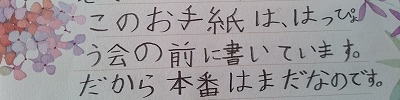 このお手紙は、はっぴょ
う会の前に書いています。
だから本番はまだなのです。